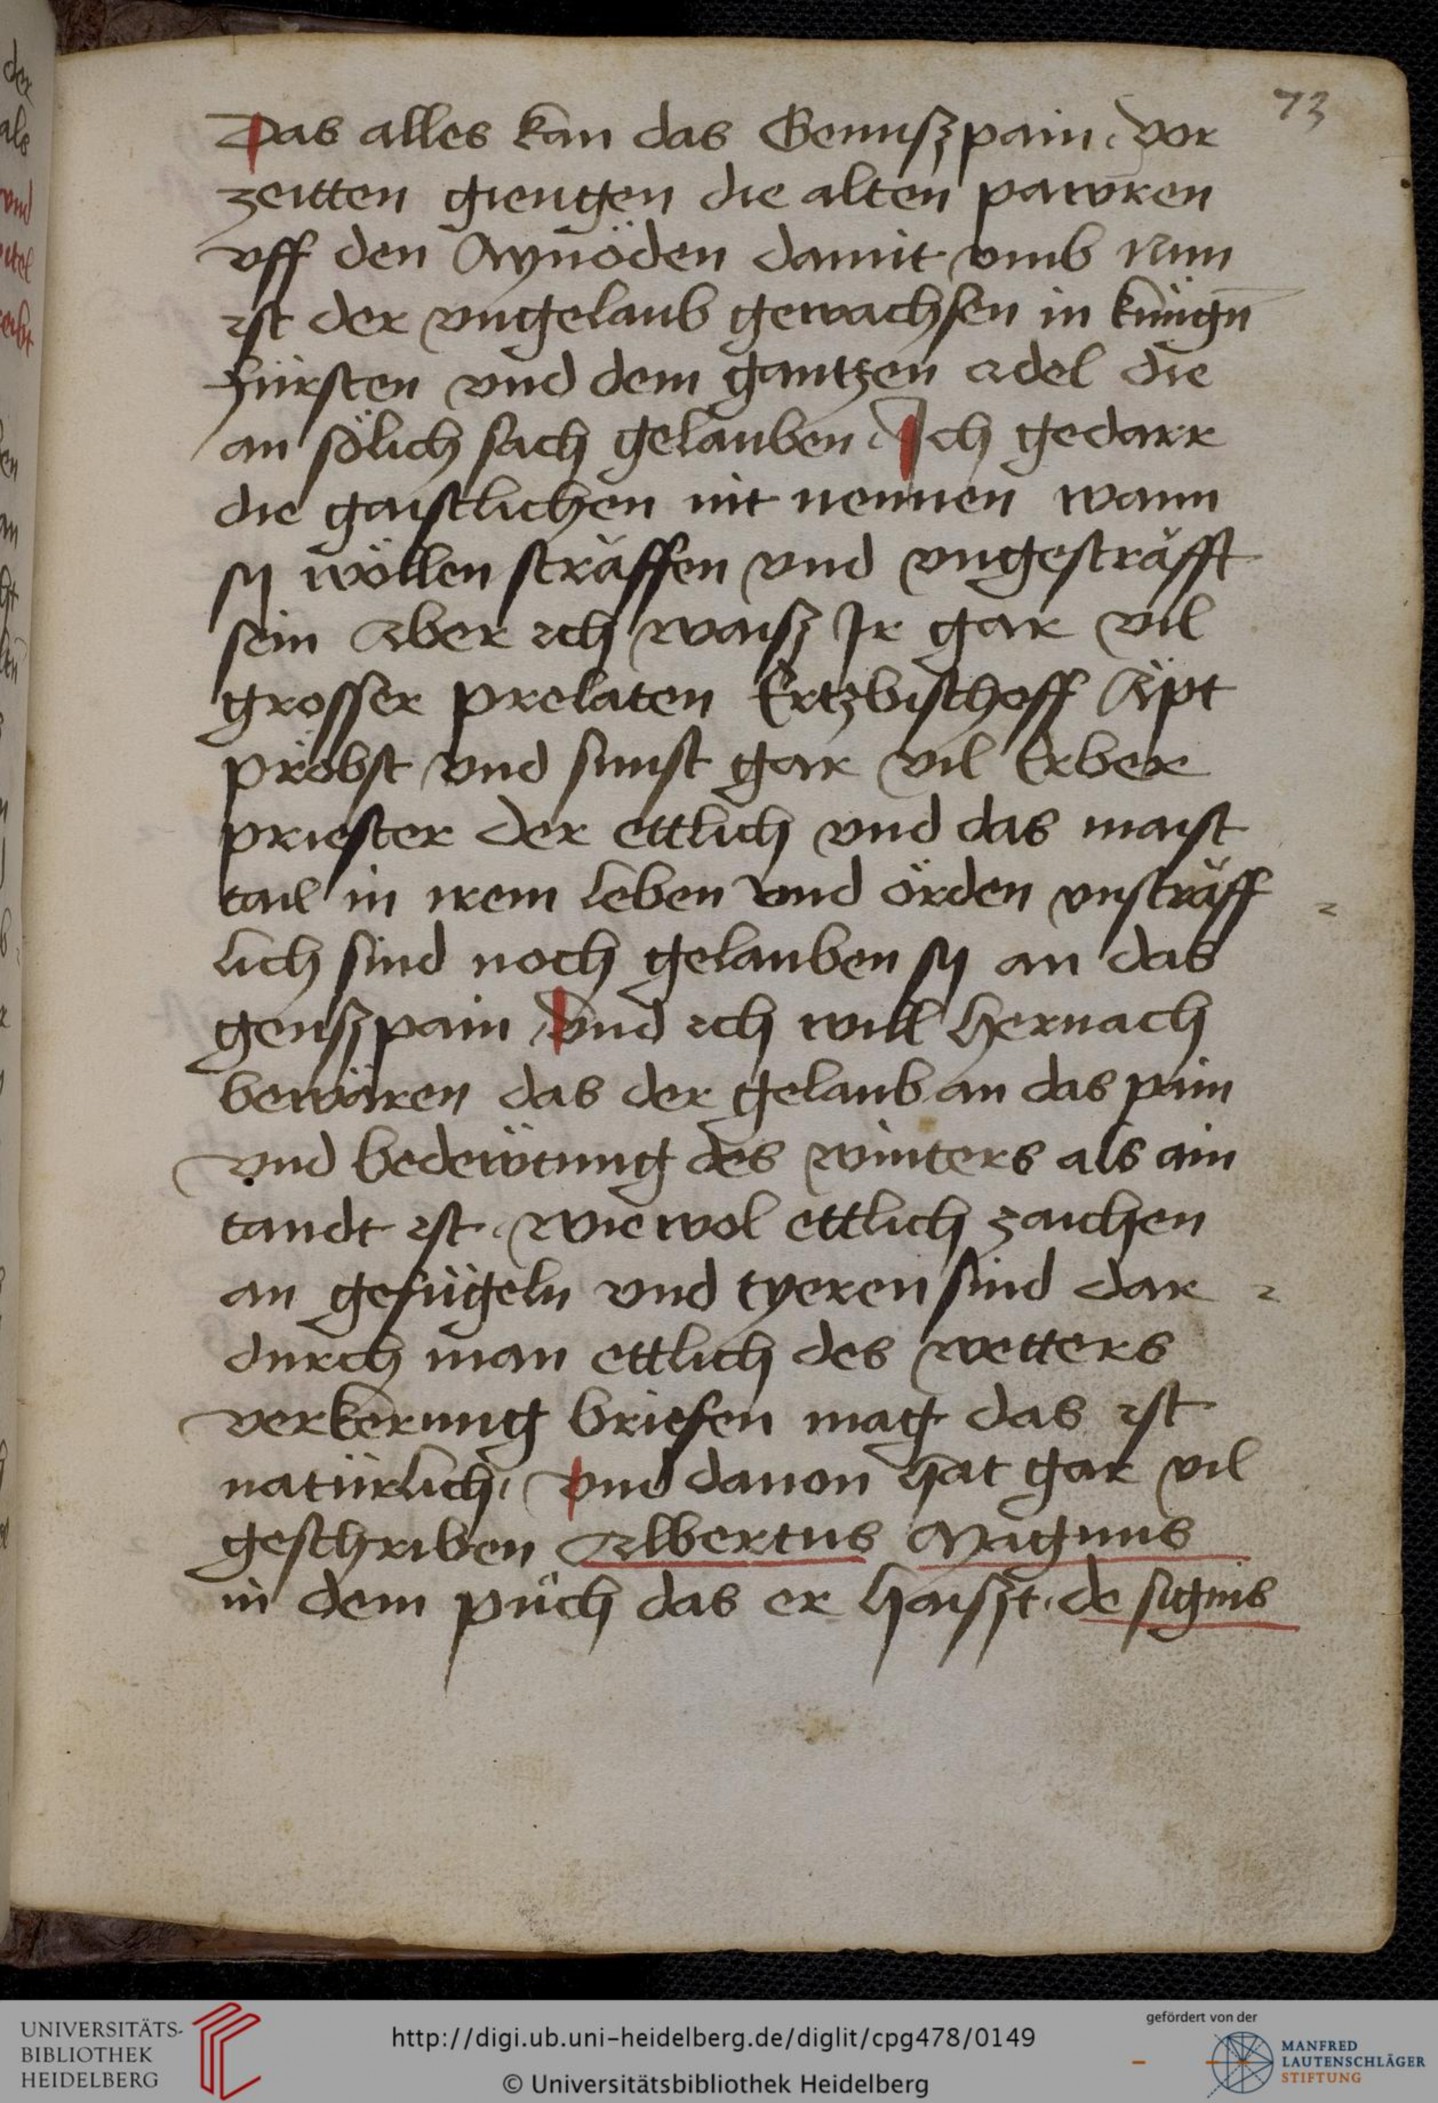 73
Das alles kan das Gennszpain. vor
zeitten giengen die alten pawren
vff den Aynöden damit vmb Nun
ist der vngelaub gewachsen in künign̄
Fürsten vnd dem gantzen adel die
an sölich sach gelauben. Ich gedarr
die gaistlichen nit nennen wann
sy wöllen sträffen vnd vngesträfft
sein Aber ich waisz Ir gar vil
grosser prelaten Ertzbischoff Äpt
pröbst vnd sunst gar vil Erber
priester der ettlich vnd das maist
tail in irem leben vnd örden vnsträff
lich sind noch gelauben sy an das
genszpain vnd ich will hernach
bewären das der gelaub an das pain
vnd bedewtung des winters als ain
tandt ist. wiewol ettlich zaichen
an gefügeln vnd tyeren sind dar
durch man ettlich des wetters
verkerung briefen mag das ist
natürlich. vnd dauon hat gar vil
geschriben Albertus Magnus
in dem půch das er haiszt. de signis
UNIVERSITÄTS-
BIBLIOTHEK
HEIDELBERG
http://digi.ub.uni-heidelberg.de/diglit/cpg478/0149
© Universitätsbibliothek Heidelberg
gefördert von der
MANFRED
LAUTENSCHLÄGER
STIFTUNG